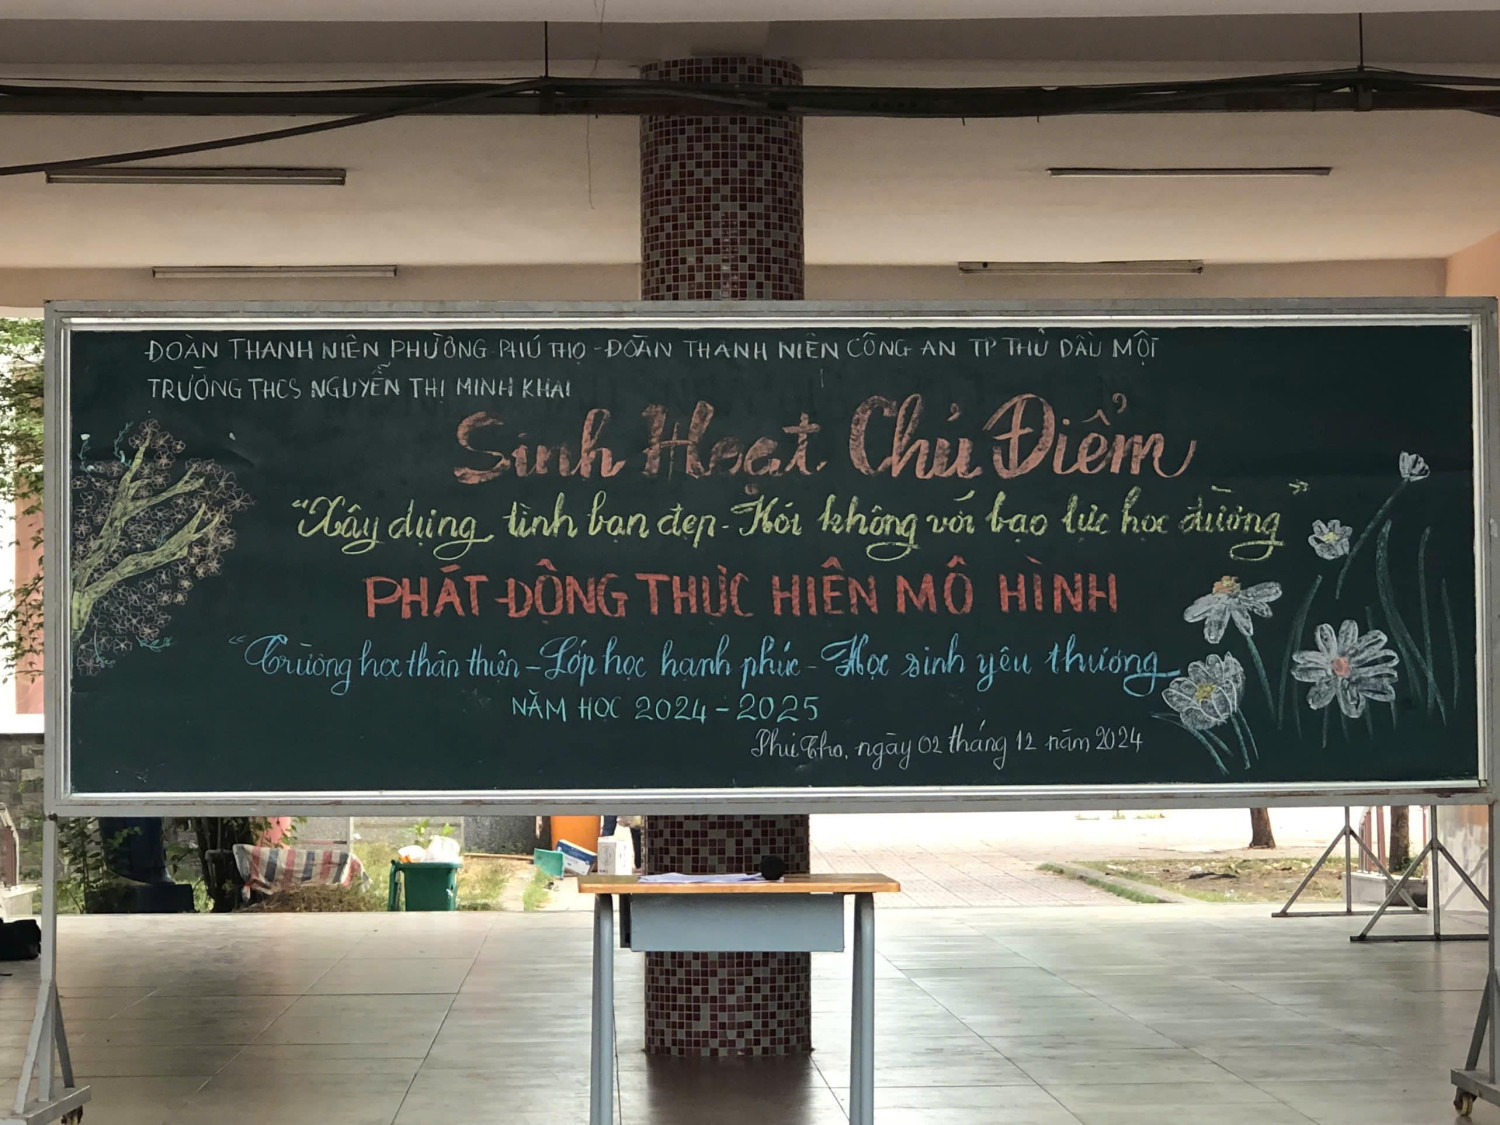 ĐOÀN THANH NIÊN PHƯỜNG PHÚ THỌ - ĐOÀN THANH NIÊN CÔNG AN TP THỦ DẦU MỘT
TRƯỜNG THCS NGUYỄN THỊ MINH KHAI
Sinh Hoạt Chủ Điểm
"Xây dựng tình bạn đẹp - Nói không với bạo lực học đường"
PHÁT ĐỘNG THỰC HIỆN MÔ HÌNH
"Trường học thân thiện - Lớp học hạnh phúc - Học sinh yêu thương
NĂM HỌC 2024 - 2025
Phú Thọ, ngày 02 tháng 12 năm 2024